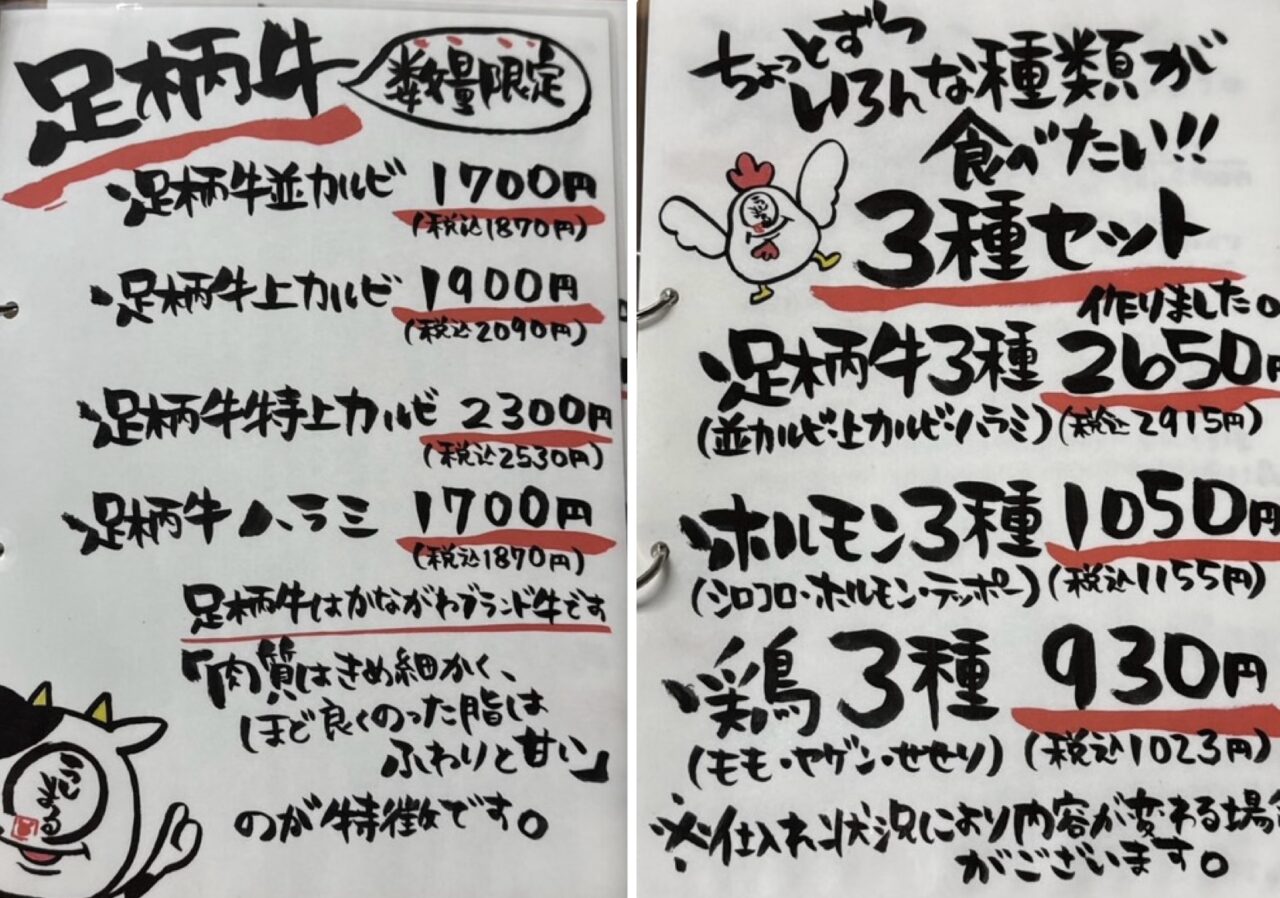 足柄牛
数量限定
足柄牛並カルビ 1700円
(税込1870円)
足柄牛上カルビ 1900円
(税込2090円)
足柄牛特上カルビ 2300円
(税込2530円)
足柄牛ハラミ 1700円
(税込1870円)
足柄牛はかながわブランド牛です
「肉質はきめ細かく、
ほど良くのった脂は
ふわりと甘い」
のが特徴です。
ちょっとずつ
いろんな種類が
食べたい!!
3種セット
作りました。
足柄牛3種 2650円
(並カルビ・上カルビ・ハラミ)(税込2915円)
ホルモン3種 1050円
(シロコロ・ホルモン・テッポー)(税込1155円)
鶏3種 930円
(もも・ヤゲン・せせり)(税込1023円)
※仕入れ状況により内容が変わる場合
がございます。